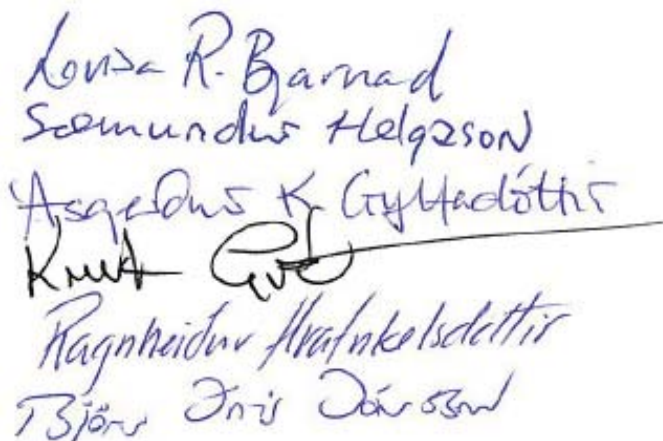 Lovísa R. Bjarnad
Sæmundur Helgason
Ásgerður K. Gylfadóttir
Ragnheiður Hrafnkelsdóttir
Björn Ingi Jónsson